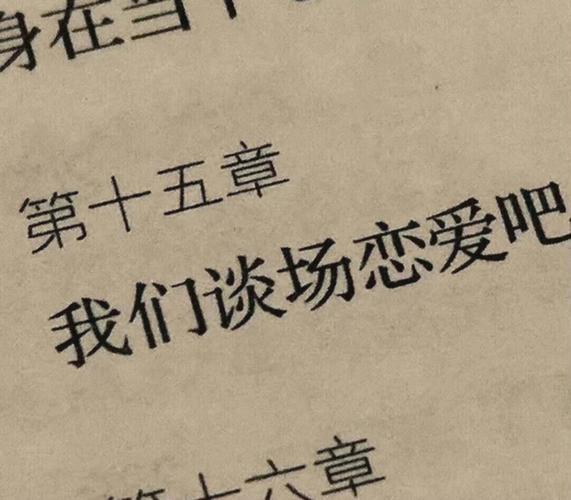 身在当下
第十五章
我们谈场恋爱吧
第十六章